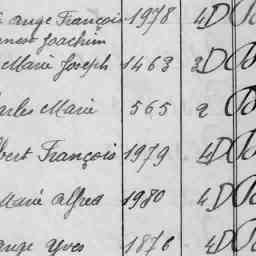 ange François 1978 4D
Joachim
Marie Joseph 1463 2D
Charles Marie 565 2
François 1979 4D
Marie Alfred 1980 4D
Ange Yves 1876 4D